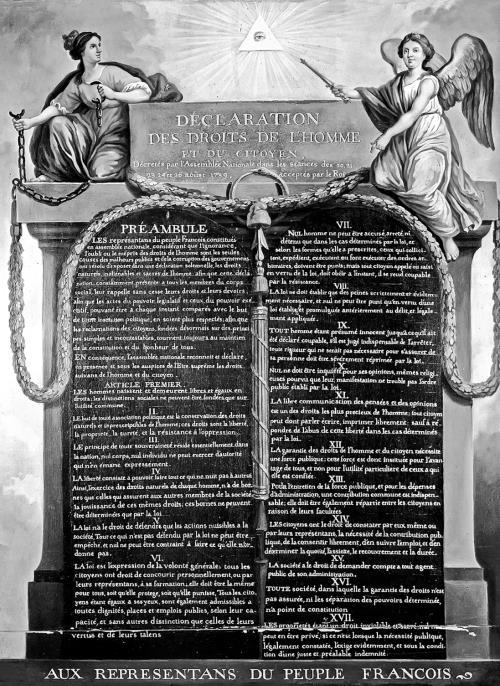 DÉCLARATION
DES DROITS DE L'HOMME
ET DU CITOYEN,
Décrétés par l'Assemblée Nationale dans les séances des 20, 21
23, 24 et 26 aoust 1789, acceptés par le Roi
PRÉAMBULE
LES représentans du peuple François, constitués
en assemblée nationale, considérant que l'ignorance,
l'oubli ou le mépris des droits de l'homme sont les seules
causes des malheurs publics et de la corruption des gouvernemens
ont résolu d'exposer dans une déclaration solemnelle, les droits
naturels, inaliénables et sacrés de l'homme; afin que cette décla-
ration, constamment présente à tous les membres du corps
social, leur rappelle sans cesse leurs droits et leurs devoirs;
afin que les actes du pouvoir législatif et ceux du pouvoir exé-
cutif, pouvant être à chaque instant comparés avec le but
de toute institution politique, en soient plus respectés; afin que
les réclamations des citoyens, fondées désormais sur des princi-
pes simples et incontestables, tournent toujours au maintien
de la constitution et du bonheur de tous.
EN conséquence, l'assemblée nationale reconnoit et déclare,
en présence et sous les auspices de l'Etre suprême les droits
suivans de l'homme et du citoyen.
ARTICLE PREMIER.
LES hommes naissent et demeurent libres et égaux en
droits; les distinctions sociales ne peuvent être fondées que sur
l'utilité commune.
II.
LE but de toute association politique est la conservation des droits
naturels et imprescriptibles de l'homme; ces droits sont la liberté,
la propriété, la sureté, et la résistance à l'oppression.
III.
LE principe de toute souveraineté réside essentiellement dans
la nation, nul corps, nul individu ne peut exercer d'autorité
qui n'en émane expressement.
IV.
LA liberté consiste à pouvoir faire tout ce qui ne nuit pas à autrui
Ainsi, l'exercice des droits naturels de chaque homme, n'a de bor-
nes que celles qui assurent aux autres membres de la société
la jouissance de ces mêmes droits; ces bornes ne peuvent
être déterminées que par la loi.
V.
LA loi n'a le droit de défendre que les actions nuisibles à la
société. Tout ce qui n'est pas défendu par la loi ne peut être
empêché, et nul ne peut être contraint à faire ce qu'elle n'or-
donne pas.
VI.
LA loi est l'expression de la volonté générale; tous les
citoyens ont droit de concourir personnellement, ou par
leurs représentans, à sa formation; elle doit être la même
pour tous, soit qu'elle protege, soit qu'elle punisse. Tous les cito-
yens étant égaux à ses yeux, sont également admissibles à
toutes dignités, places et emplois publics, selon leur ca-
pacité, et sans autres distinction que celles de leurs
vertus et de leurs talens.
VII.
NUL homme ne peut être accusé, arrêté, ni
détenu que dans les cas déterminés par la loi, et
selon les formes qu'elle a prescrites, ceux qui sollici-
tent, expédient, exécutent ou font exécuter des ordres ar-
bitraires, doivent être punis; mais tout citoyen appelé ou saisi
en vertu de la loi, doit obéir à l'instant, il se rend coupable
par la résistance.
VIII.
LA loi ne doit établir que des peines strictement et évidem-
ment nécessaires, et nul ne peut être puni qu'en vertu d'une
loi établie et promulguée antérieurement au délit, et léga-
lement appliquée.
IX.
TOUT homme étant présumé innocent jusqu'à ce qu'il ait
été déclaré coupable, s'il est jugé indispensable de l'arrêter,
toute rigueur qui ne serait pas nécessaire pour s'assurer de
sa personne doit être sévérement réprimée par la loi.
X.
NUL ne doit être inquiété pour ses opinions, mêmes religi-
euses pourvu que leur manifestation ne trouble pas l'ordre
public établi par la loi.
XI.
LA libre communication des pensées et des opinions
est un des droits les plus precieux de l'homme; tout citoyen
peut donc parler, écrire, imprimer librement; sauf à ré-
pondre de l'abus de cette liberté dans les cas déterminés
par la loi.
XII.
LA garantie des droits de l'homme et du citoyen nécessite
une force publique; cette force est donc instituée pour l'avan-
tage de tous, et non pour l'utilité particuliere de ceux a qui
elle est confiée.
XIII.
POUR l'entretien de la force publique, et pour les dépenses
d'administration, une contribution commune est indispen-
sable; elle doit être également répartie entre les citoyens en
raison de leurs facultées.
XIV.
LES citoyens ont le droit de constater par eux même ou
par leurs représentans, la nécessité de la contribution pub-
lique, de la consentir librement, d'en suivre l'emploi, et d'en
déterminer la quotité, l'assiette, le recouvrement et la durée.
XV.
LA société a le droit de demander compte a tout agent
public de son administration.
XVI.
TOUTE société, dans laquelle la garantie des droits n'est
pas assurée, ni les séparation des pouvoirs déterminée,
n'a point de constitution.
XVII.
LES propriétés étant un droit inviolable et sacré, nul ne
peut en être privé, si ce n'est lorsque la nécessité publique,
légalement constatée, l'exige évidemment, et sous la condi-
tion d'une juste et préalable indemnité.
AUX REPRESENTANS DU PEUPLE FRANCOIS